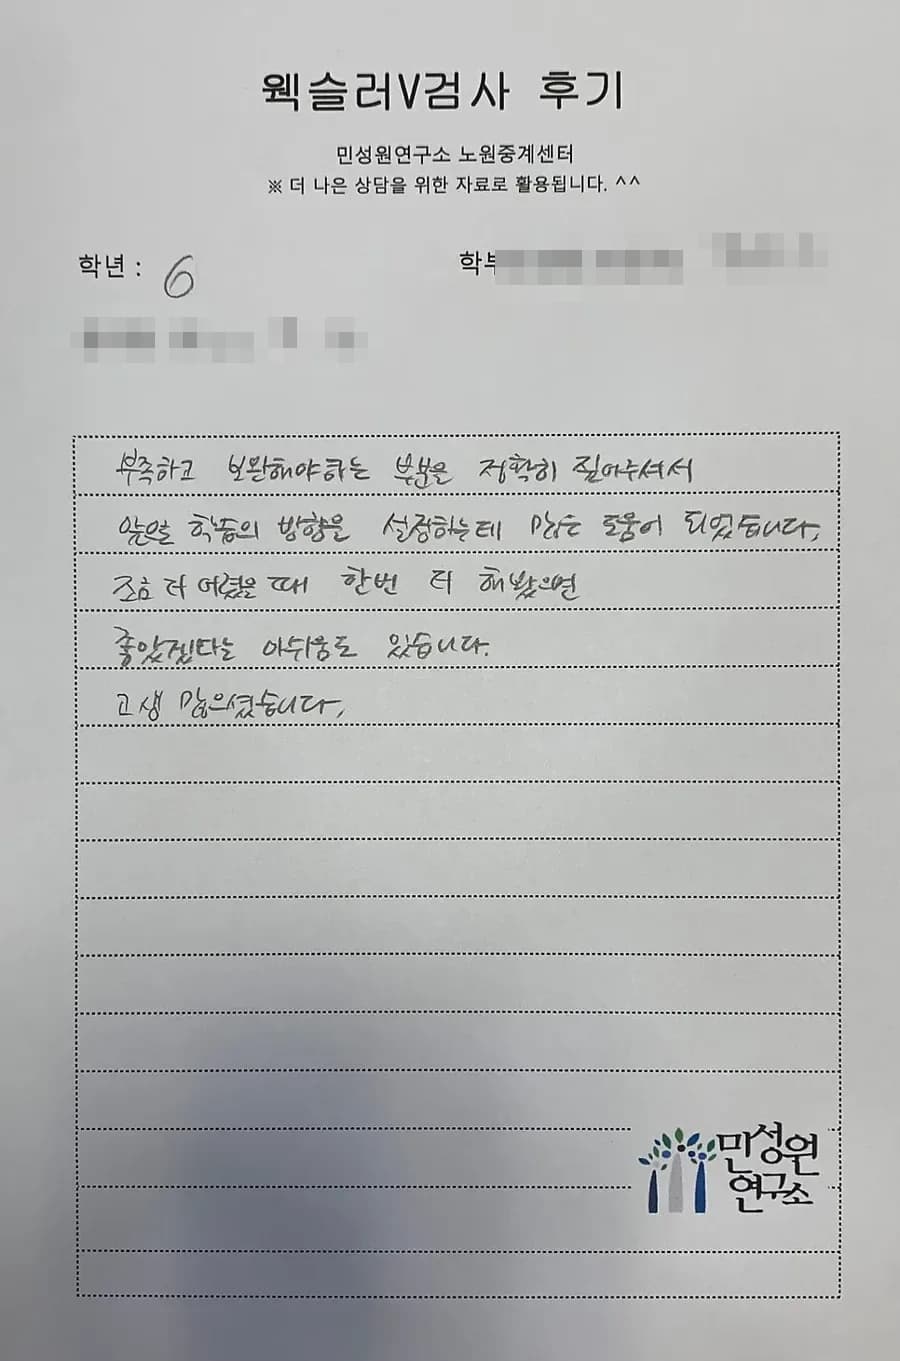 웩슬러V검사 후기
민성원연구소 노원중계센터
※ 더 나은 상담을 위한 자료로 활용됩니다. ^^
학년 : 6
학부
부족하고 보완해야하는 부분을 정확히 짚어주셔서
앞으로 학습의 방향을 설정하는데 많은 도움이 되었습니다.
조금 더 어렸을 때 한번 더 해봤으면
좋았겠다는 아쉬움도 있습니다.
고생 많으셨습니다.
민성원
연구소